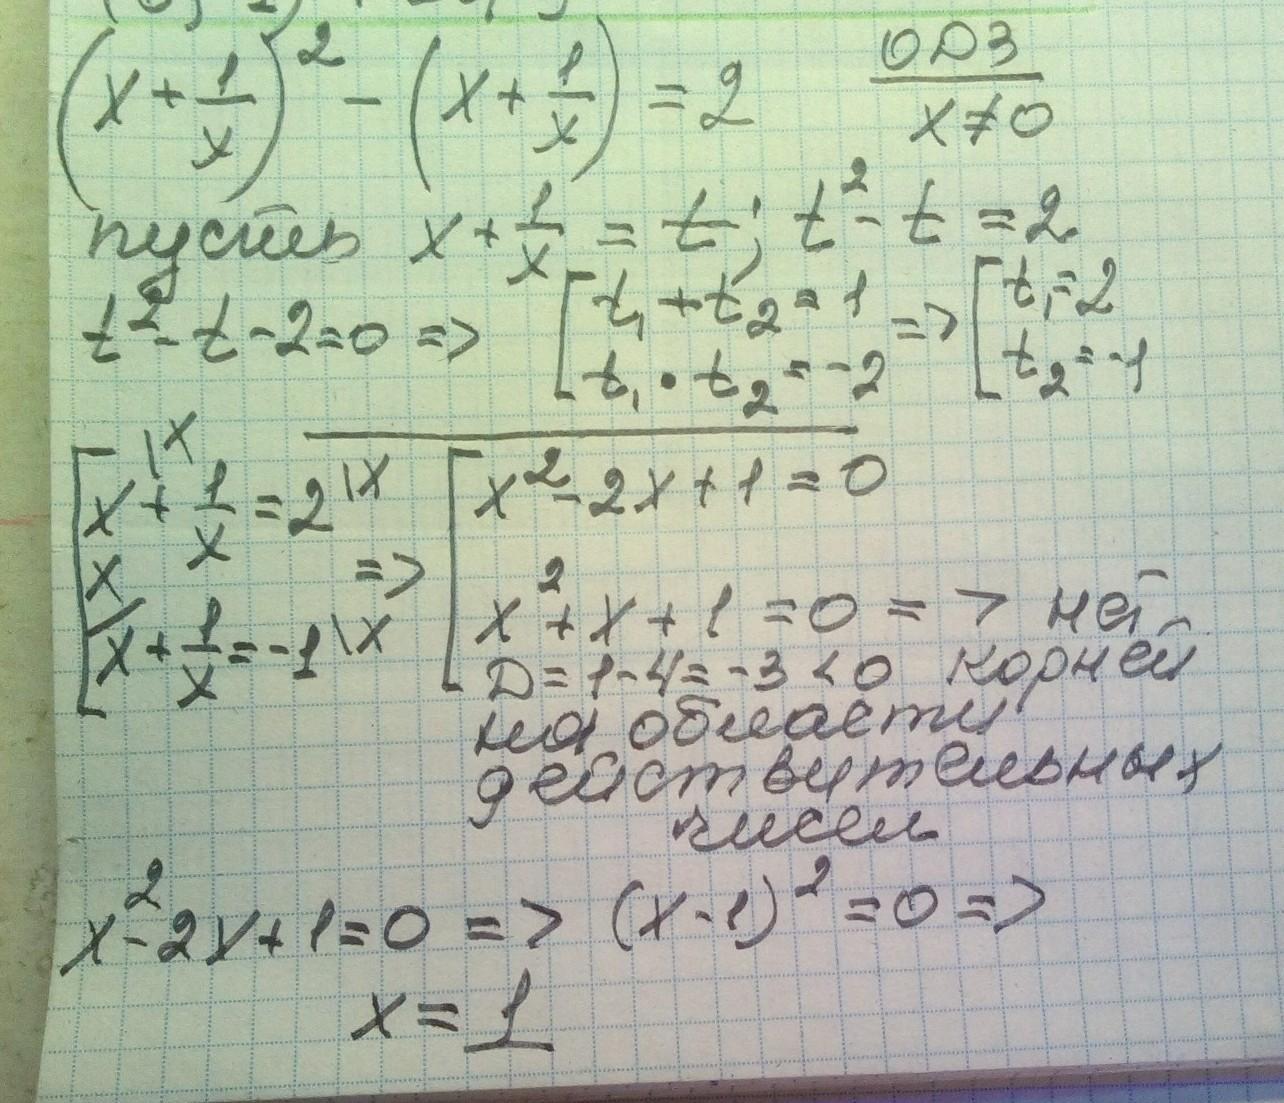 (x + 1/x)² - (x + 1/x) = 2
ОДЗ
x ≠ 0
пусть x + 1/x = t; t² - t = 2
t² - t - 2 = 0 => [ t₁ + t₂ = 1 => [ t₁ = 2
t₁ • t₂ = -2 t₂ = -1
[ x\x + 1/x = 2\x => [ x² - 2x + 1 = 0
x
x + 1/x = -1\x x² + x + 1 = 0 => нет
D = 1 - 4 = -3 < 0 корней
на области
действительных
чисел
x² - 2x + 1 = 0 => (x - 1)² = 0 =>
x = 1